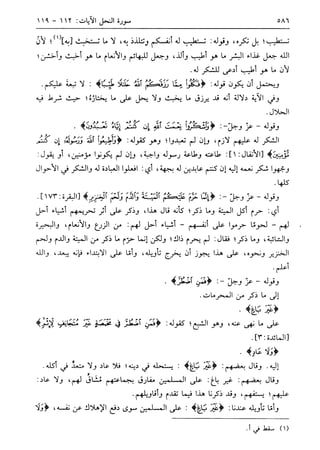 ٥٨٦ سورة النحل الآيات: ١١٢ - ١١٩
نستطيب؛ بل نكره، وقوله: نستطيب له أنفسكم وتتلذذ به، لا ما تستخبث [به](١)؛ لأن
الله جعل غذاء البشر ما هو أطيب وألذ، وجعل للبهائم والأنعام ما هو أخبث وأخشن؛
لأن ما هو أطيب أدعى للشكر له.
ويحتمل أن يكون قوله: ﴿فَكُلُوا مِمَّا رَزَقَكُمُ اللَّهُ حَلَالًا طَيِّبًا﴾: لا تبعة عليكم.
وفي الآية دلالة أنه قد يرزق ما يخبث ولا يحل على ما يختاره؛ حيث شرط فيه
الحلال.
وقوله - عز وجل -: ﴿وَاشْكُرُوا نِعْمَتَ اللَّهِ إِنْ كُنْتُمْ إِيَّاهُ تَعْبُدُونَ﴾.
الشكر له عليهم لازم، وإن لم تعبدوا؛ وهو كقوله: ﴿وَأَطِيعُوا اللَّهَ وَرَسُولَهُ إِنْ كُنْتُمْ
مُؤْمِنِينَ﴾ [الأنفال: ١]: طاعته وطاعة رسوله واجبة، وإن لم يكونوا مؤمنين، أو يقول:
وجهوا شكر نعمه إليه إن كنتم عابدين له بجهة، أي: افعلوا العبادة له والشكر في الأحوال
كلها.
وقوله - عز وجل -: ﴿إِنَّمَا حَرَّمَ عَلَيْكُمُ الْمَيْتَةَ وَالدَّمَ وَلَحْمَ الْخِنْزِيرِ﴾ [البقرة: ١٧٣].
أي: حرم أكل الميتة وما ذكر؛ كأنه قال هذا، وذكر على أثر تحريمهم أشياء أحل
لهم - لحومًا حرموا على أنفسهم - أشياء أحل لهم: من الزرع والأنعام، والبحيرة
والسائبة، وما ذكر؛ فقال: لم يحرم ذاك؛ ولكن إنما حرم ما ذكر من الميتة والدم ولحم
الخنزير ونحوه، على هذا يجوز أن يخرج تأويله، وأما على الابتداء فإنه يبعد، والله
أعلم.
وقوله - عز وجل -: ﴿فَمَنِ اضْطُرَّ﴾.
إلى ما ذكر من المحرمات.
﴿غَيْرَ بَاغٍ﴾.
على ما نهى عنه، وهو الشبع؛ كقوله: ﴿فَمَنِ اضْطُرَّ فِي مَخْمَصَةٍ غَيْرَ مُتَجَانِفٍ لِإِثْمٍ﴾
[المائدة: ٣].
﴿وَلَا عَادٍ﴾.
إليه. وقال بعضهم: ﴿غَيْرَ بَاغٍ﴾: يستحله في دينه؛ فلا عاد ولا متعدٍّ في أكله.
وقال بعضهم: غير باغ: على المسلمين مفارق بجماعتهم مُشَاقّ لهم، ولا عاد:
عليهم؛ يستفهم، وقد ذكرنا هذا فيما تقدم وأقاويلهم.
وأما تأويله عندنا: ﴿غَيْرَ بَاغٍ﴾: على المسلمين سوى دفع الإهلاك عن نفسه، ﴿وَلَا
(١) سقط في أ.